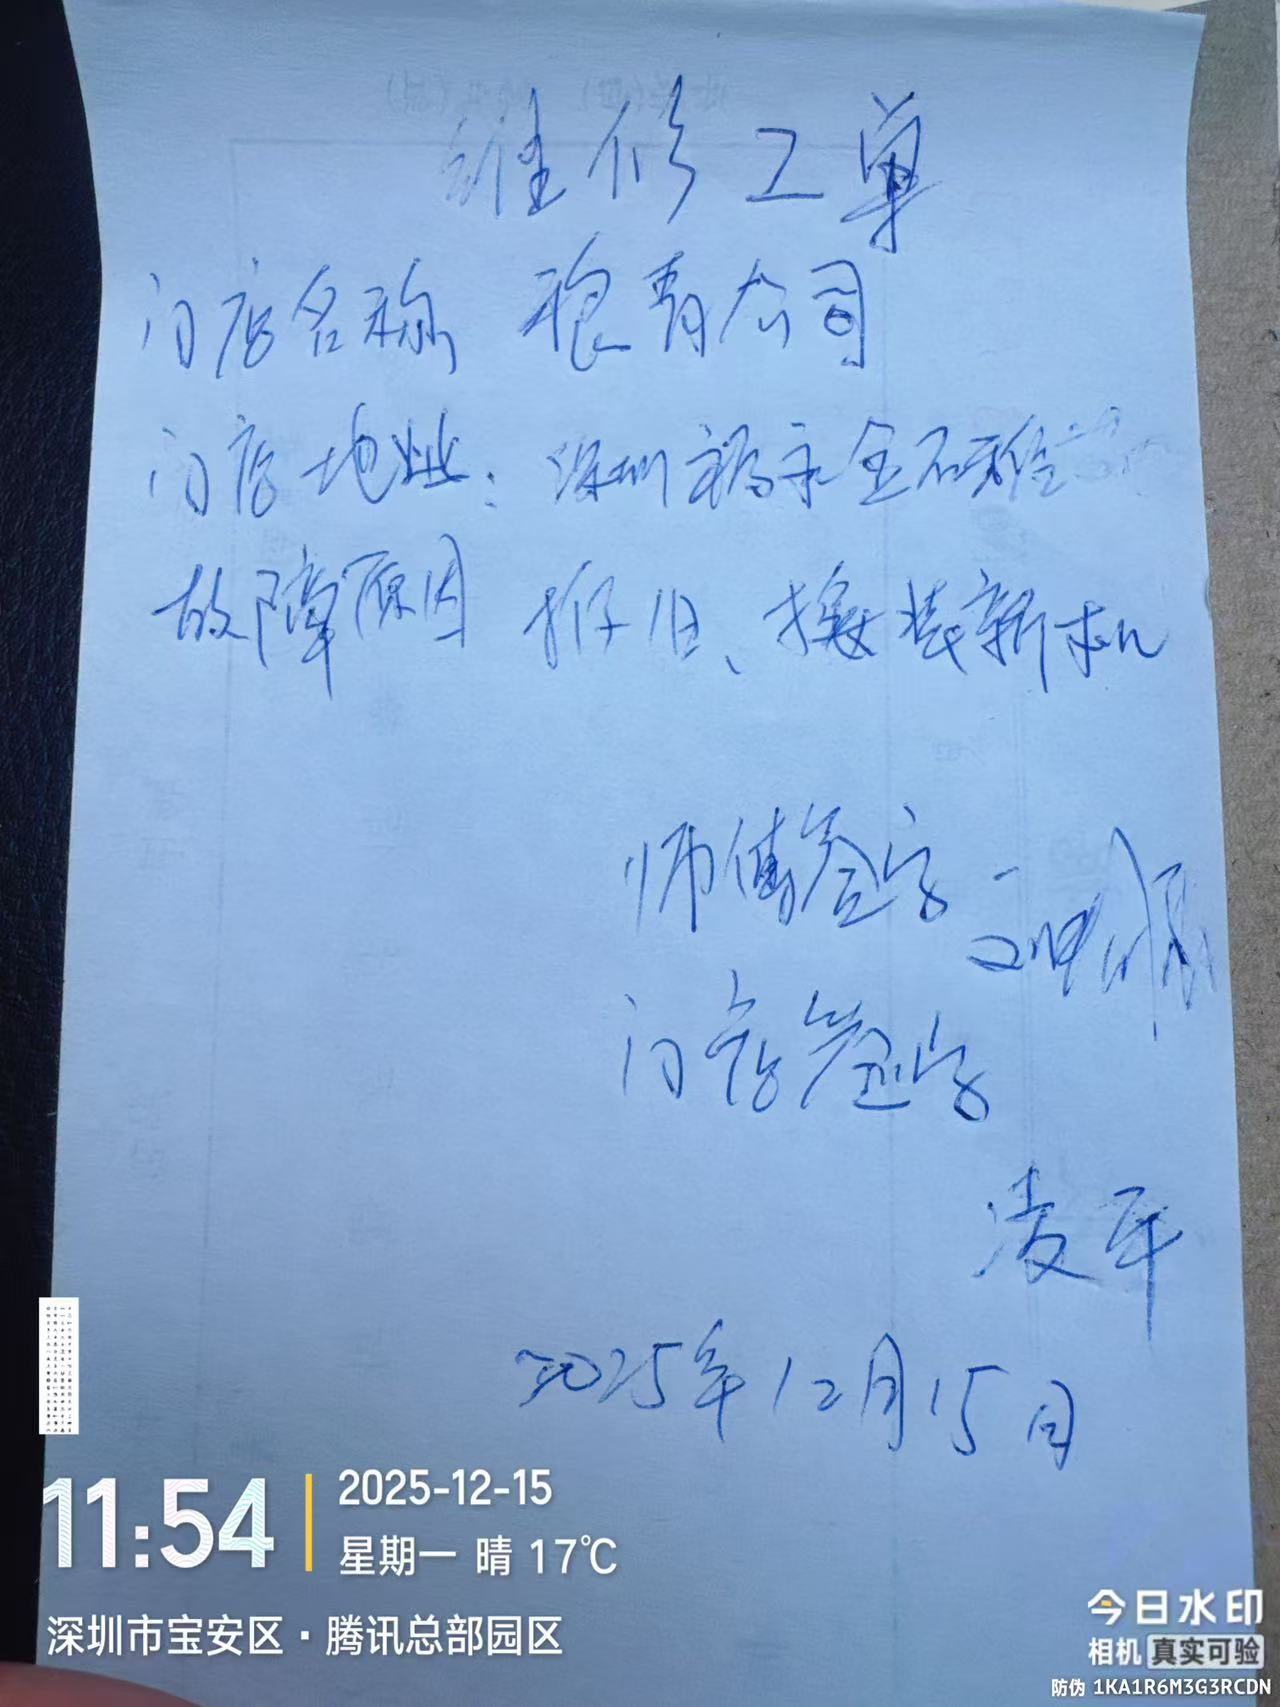 维修工单
门店名称 粮青公司
门店地址：深圳福永全不难
故障原因 拆旧、换装新机
师傅签字
门店签字
凌军
2025年12月15日
11:54
2025-12-15
星期一 晴 17℃
深圳市宝安区·腾讯总部园区
今日水印
相机 真实可验
防伪 1KA1R6M3G3RCDN